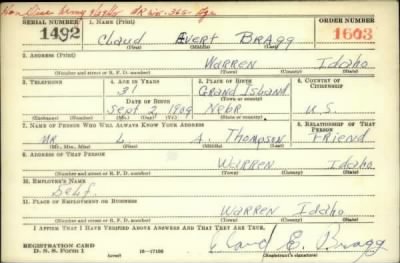 SERIAL NUMBER 1. NAME (Print) ORDER NUMBER
1492 Claud Evert Bragg 1603
(First) (Middle) (Last)
2. ADDRESS (Print)
Warren Idaho
(Number and street or R. F. D. number) (Town) (County) (State)
3. TELEPHONE 4. AGE IN YEARS 5. PLACE OF BIRTH 6. COUNTRY OF CITIZENSHIP
31 Grand Island
DATE OF BIRTH (Town or county)
Sept. 2 1909 Nebr U.S.
(Exchange) (Number) (Mo.) (Day) (Yr.) (State or country)
7. NAME OF PERSON WHO WILL ALWAYS KNOW YOUR ADDRESS 8. RELATIONSHIP OF THAT PERSON
Mr. L. A. Thompson Friend
(Mr., Mrs., Miss) (First) (Middle) (Last)
9. ADDRESS OF THAT PERSON
Warren Idaho
(Number and street or R. F. D. number) (Town) (County) (State)
10. EMPLOYER'S NAME
Self.
11. PLACE OF EMPLOYMENT OR BUSINESS
Warren Idaho
(Number and street or R. F. D. number) (Town) (County) (State)
I AFFIRM THAT I HAVE VERIFIED ABOVE ANSWERS AND THAT THEY ARE TRUE.
REGISTRATION CARD
D. S. S. Form 1 (over) 16-17105 Claud E. Bragg
(Registrant's signature)